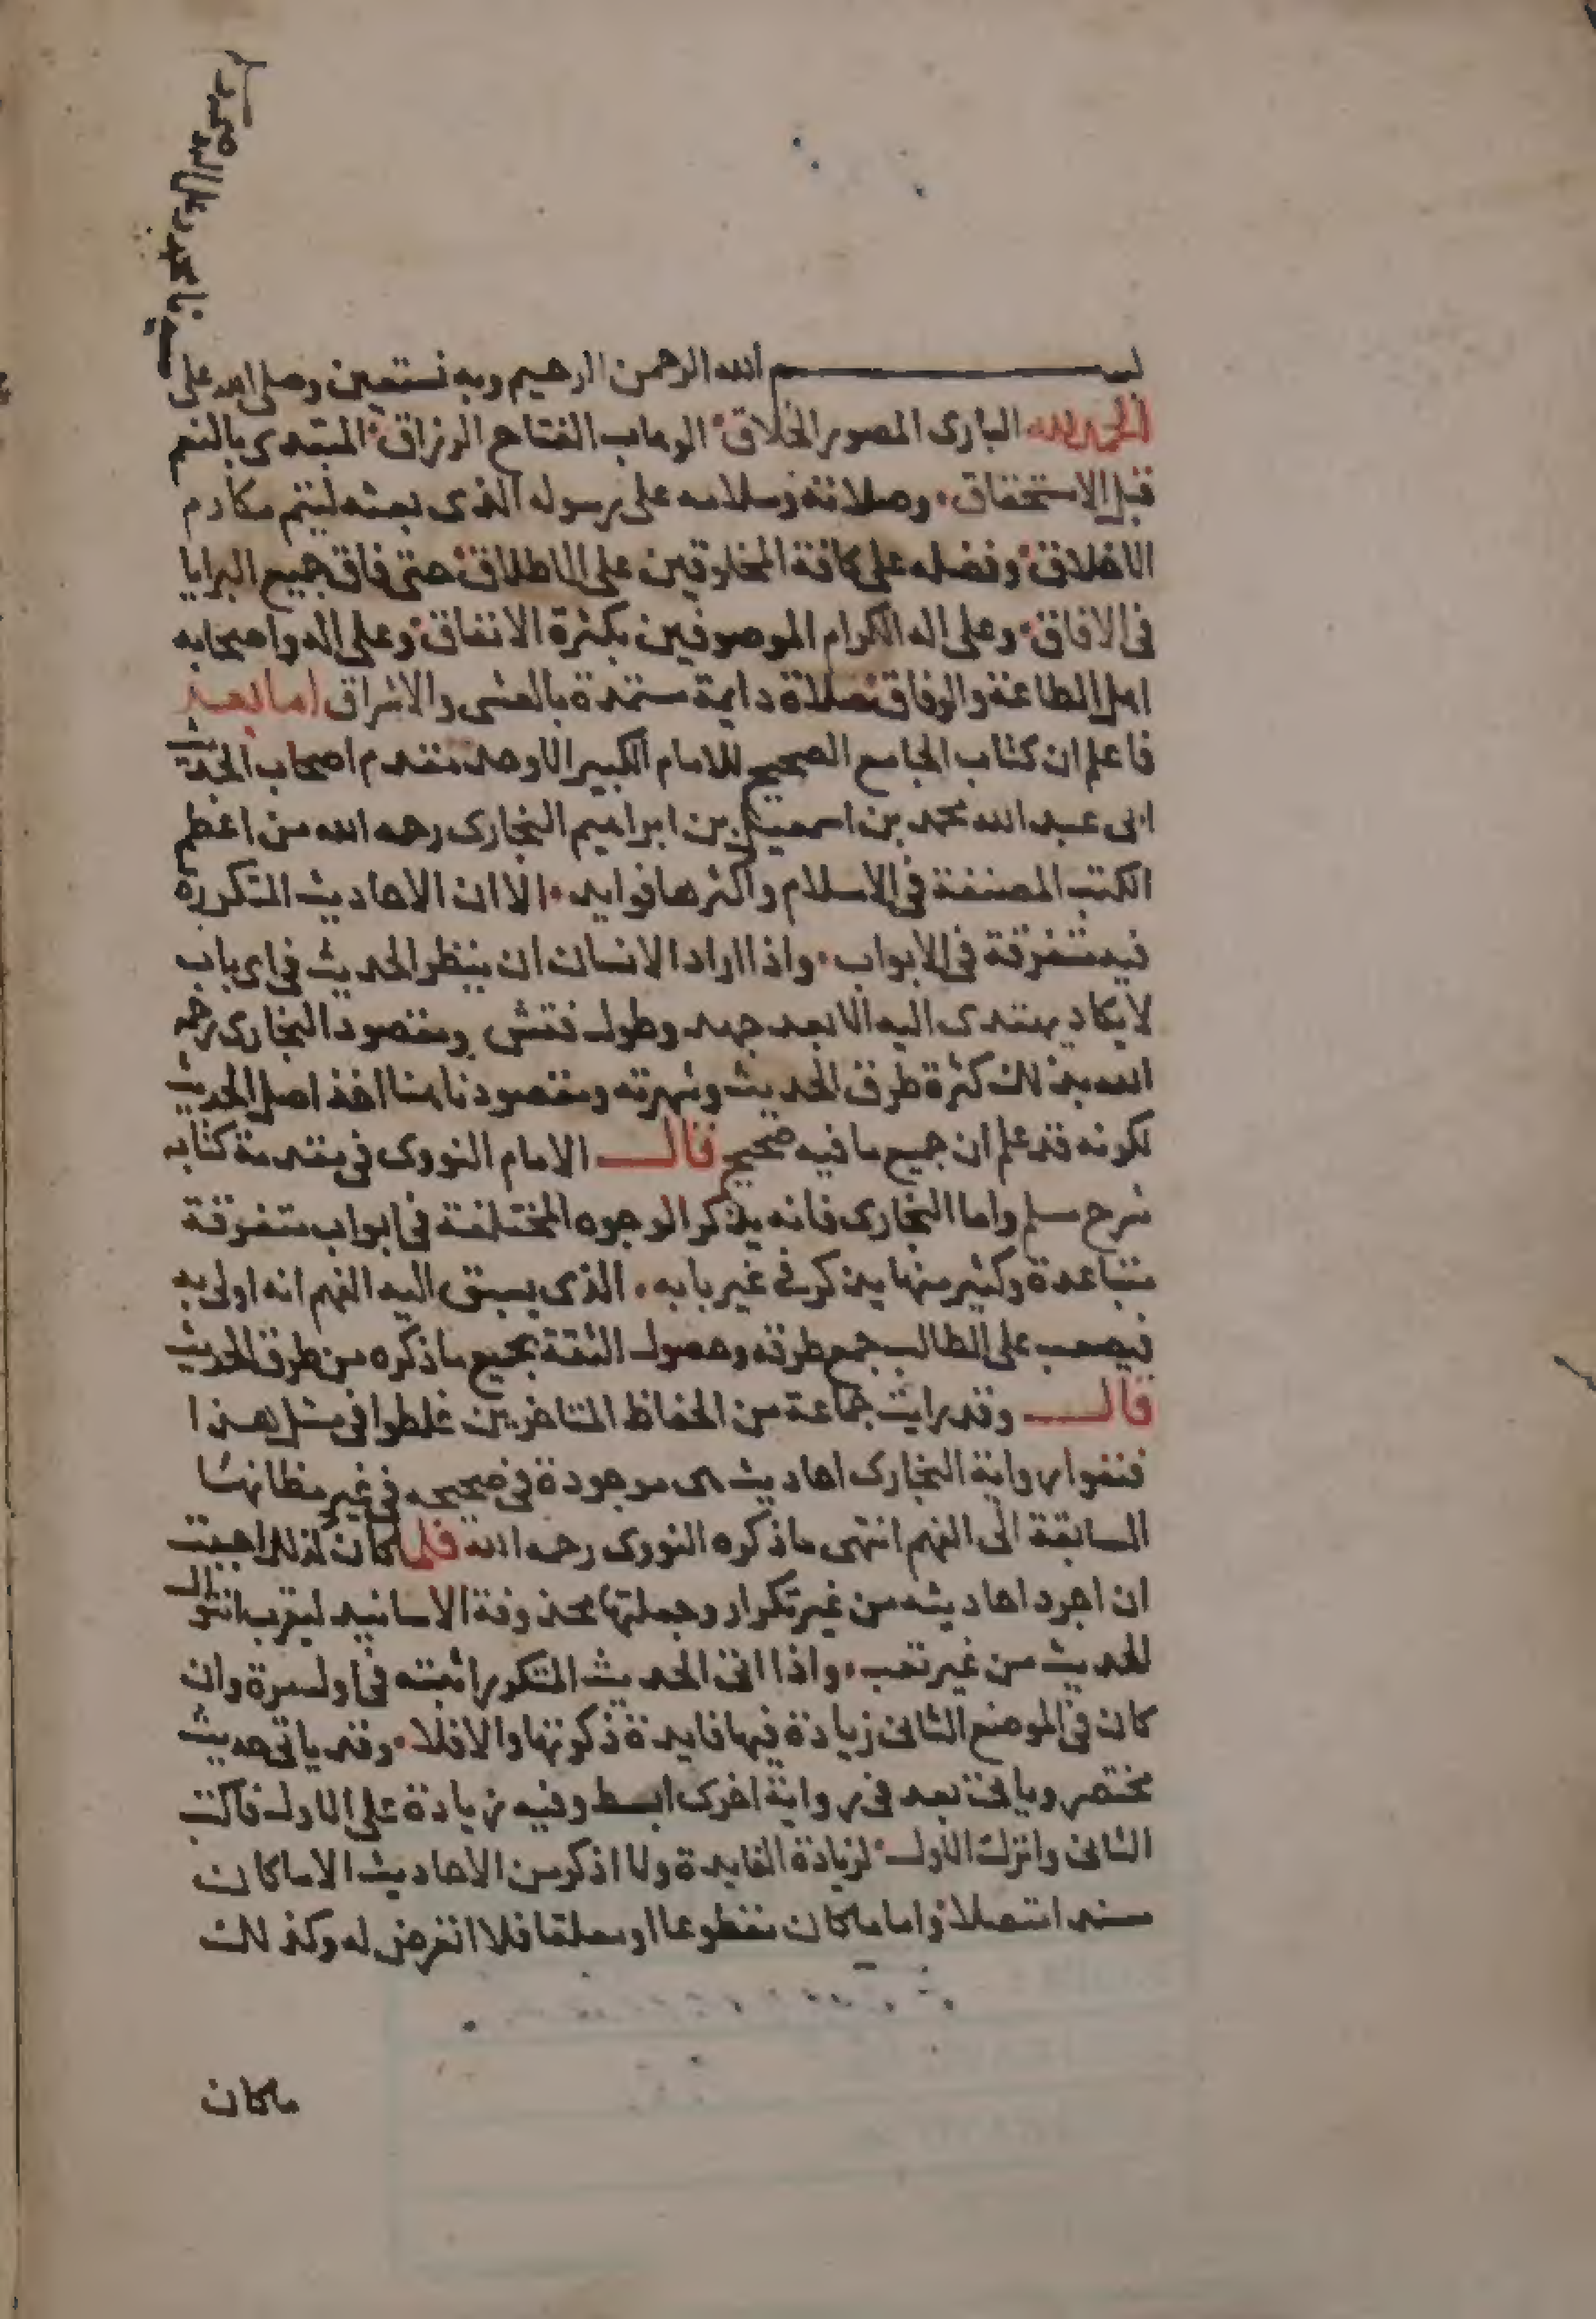 بسم الله الرحمن الرحيم وبه نستعين وصلى الله على
سيدنا محمد وعلى اله وصحبه وسلم
الحمد لله البارى المصور الخلاق الوهاب الفتاح الرزاق المبتدى بالنعم
قبل الاستحقاق وصلاته وسلامه على رسوله الذى بعثه ليتم مكارم
الاخلاق وفضله على كافة المخلوقين على الاطلاق حتى فاق جميع البرايا
فى الافاق وعلى اله الكرام الموصوفين بكثرة الانفاق وعلى اله واصحابه
اهل الطاعة والوفاق صلاة دايمة مستمدة بالعشى والاشراق اما بعد
فاعلم ان كتاب الجامع الصحيح للامام الكبير الاوحد مقدم اصحاب الحديث
ابى عبد الله محمد بن اسمعيل بن ابراهيم البخارى رحمه الله من اعظم
الكتب المصنفة فى الاسلام واكثرها فوايد الا ان الاحاديث المتكررة
فيه متفرقة فى الابواب واذا اراد الانسان ان ينظر الحديث فى اى باب
لا يكاد يهتدى اليه الا بعد جهد وطول فتش ومقصود البخارى رحمه
الله بذلك كثرة طرق الحديث وشهرته ومقصودنا هنا اخذ اصل الحديث
لكونه قد علم ان جميع ما فيه صحيح قال الامام النووى فى مقدمة كتابه
شرح مسلم واما البخارى فانه يذكر الوجوه المختلفة فى ابواب متفرقة
متباعدة وكثير منها يذكره فى غير بابه الذى يسبق اليه الفهم انه اولى به
فيصعب على الطالب جمع طرقه وحصول الثقة بجميع ما ذكره من طرق الحديث
قال وقد رايت جماعة من الحفاظ المتاخرين غلطوا فى مثل هذا
فنفوا رواية البخارى احاديث هى موجودة فى صحيحه فى غير مظانها
السابقة الى الفهم انتهى ما ذكره النووى رحمه الله فلما كان كذلك احببت
ان اجرد احاديثه من غير تكرار وجعلتها محذوفة الاسانيد ليقرب انتوال
الحديث من غير تعب واذا اتى الحديث المتكرر اثبته فى اول مرة وان
كان فى الموضع الثانى زيادة فيها فايدة ذكرتها والا فلا وقد ياتى حديث
مختصر وياتى بعد فى رواية اخرى ابسط وفيه زيادة على الاول فاكتب
الثانى واترك الاول لزيادة الفايدة ولا اذكر من الاحاديث الا ما كان
مسندا متصلا واما ما كان مقطوعا او معلقا فلا اتعرض له وكذلك
ما كان